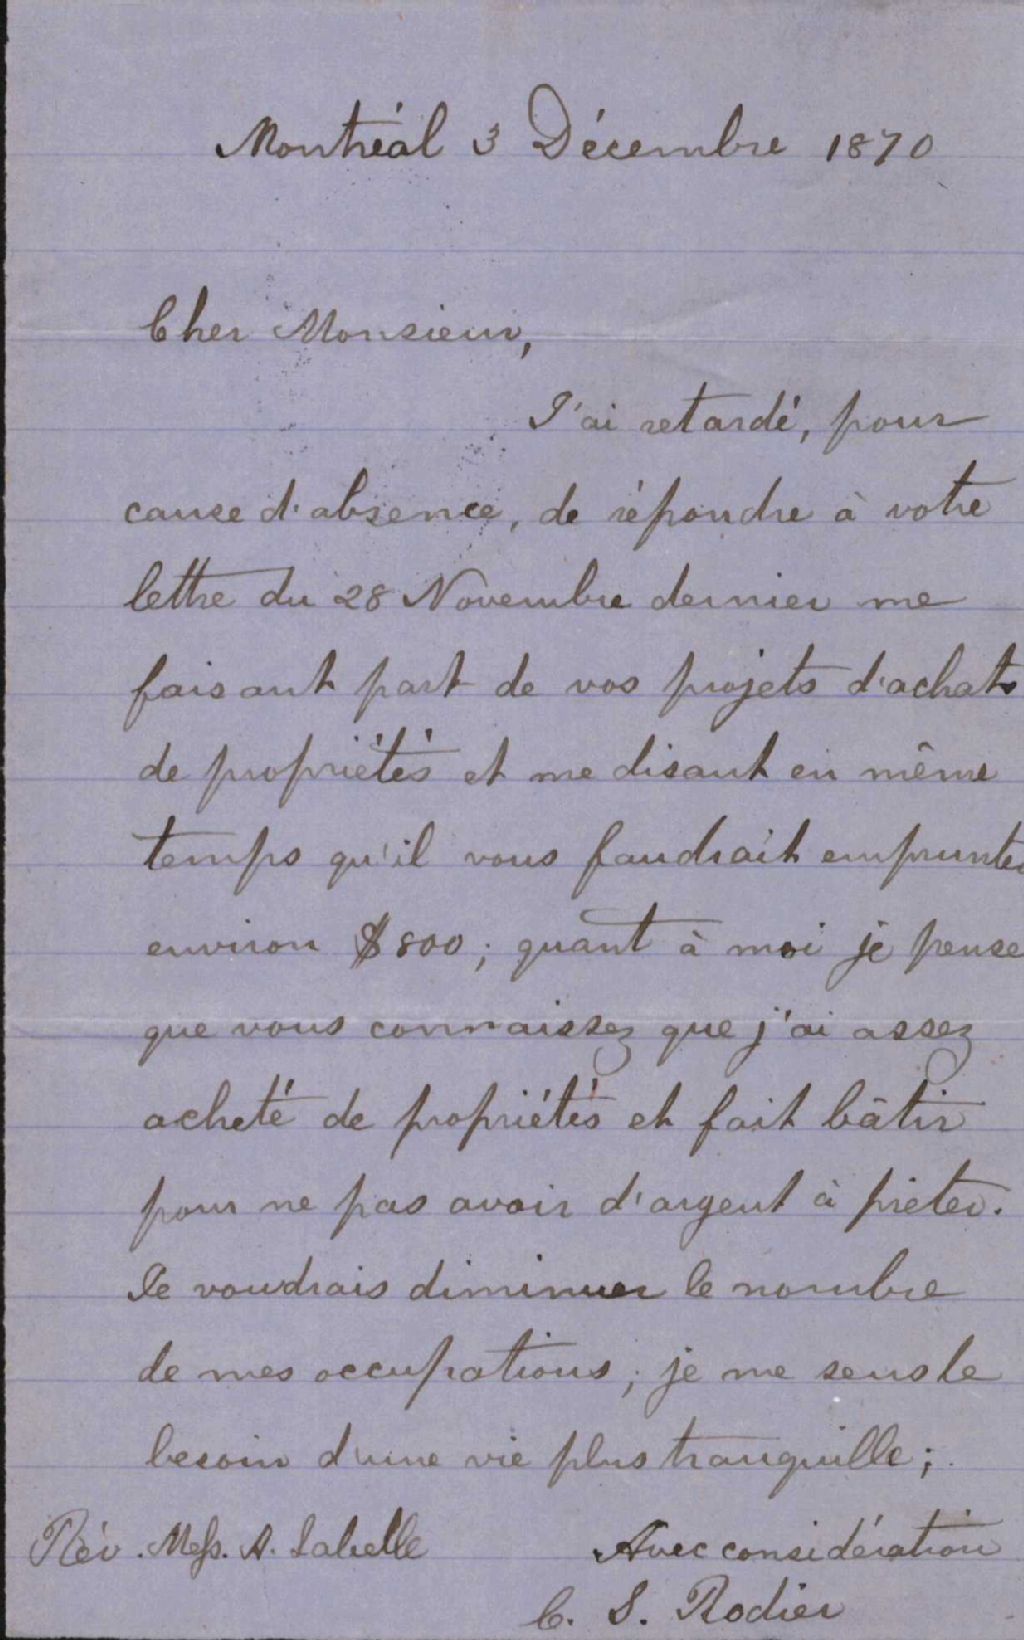 Montréal 3 Décembre 1870
Cher Monsieur,
J'ai retardé, pour
cause d'absence, de répondre à votre
lettre du 28 Novembre dernier me
faisant part de vos projets d'achats
de propriétés et me disant en même
temps qu'il vous faudrait emprunter
environ $800; quant à moi je pense
que vous connaissez que j'ai assez
acheté de propriétés et fait bâtir
pour ne pas avoir d'argent à prêter.
Je voudrais diminuer le nombre
de mes occupations; je me sens le
besoin d'une vie plus tranquille;
Rév. Mess. A. Labelle
Avec considération
C. S. Rodier